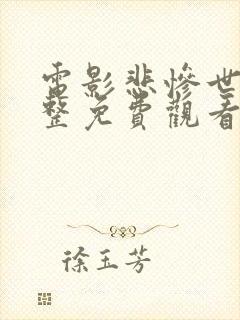 電影悲慘世
整免費觀看
徐玉芳